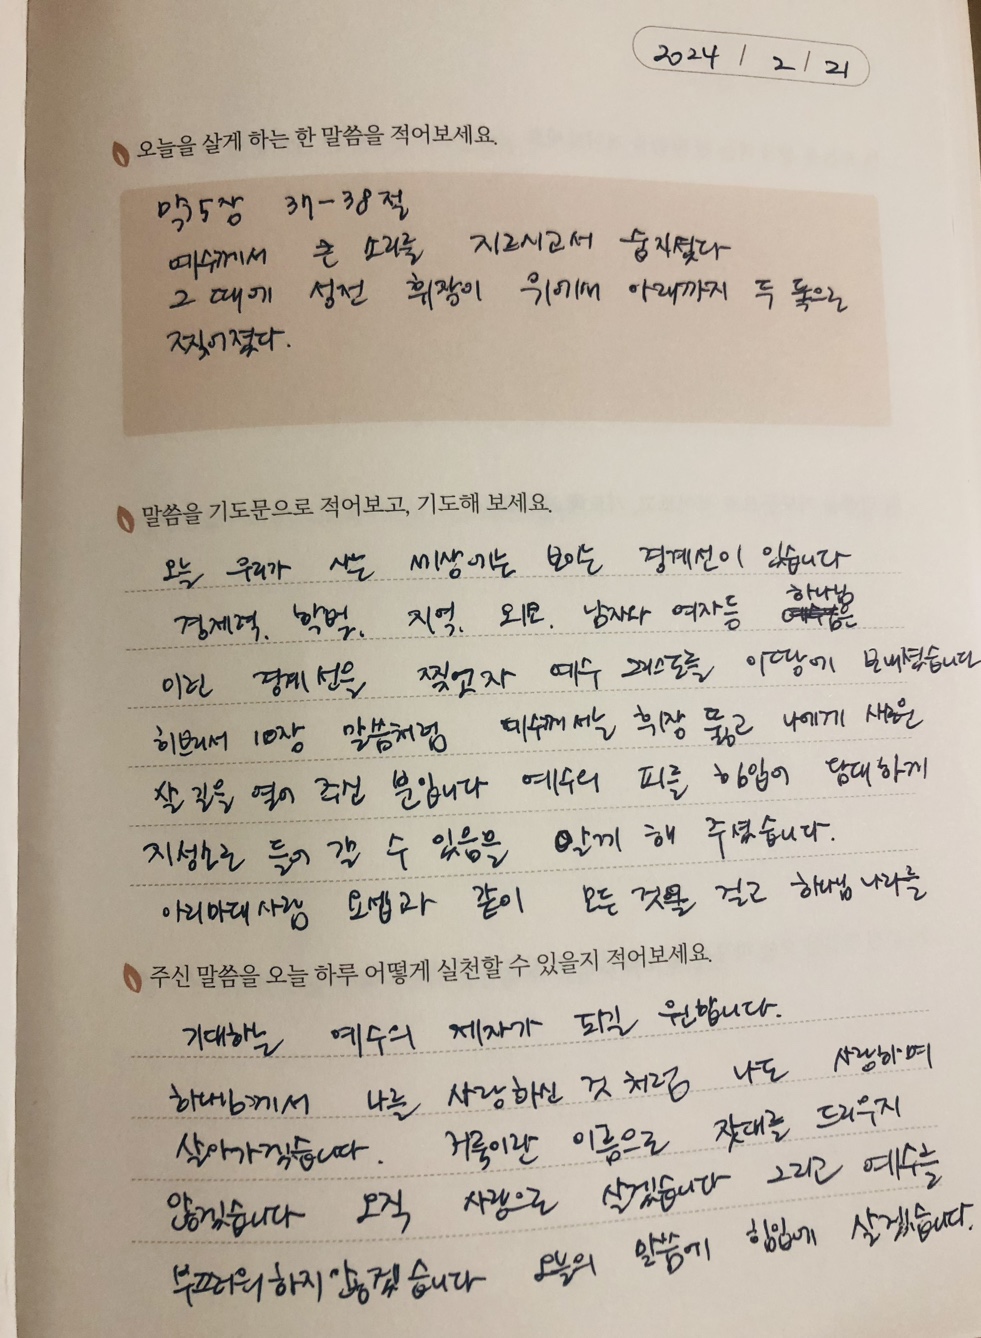 2024 / 2 / 21
오늘을 살게 하는 한 말씀을 적어보세요.
막15장 37-38절
예수께서 큰 소리를 지르시고서 숨지셨다
그 때에 성전 휘장이 위에서 아래까지 두 폭으로
찢어졌다.
말씀을 기도문으로 적어보고, 기도해 보세요.
오늘 우리가 사는 세상에는 보이는 경계선이 있습니다
경제력, 학벌, 지역, 외모, 남자와 여자등 하나님은
이런 경계선을 찢고자 예수 그리스도를 이땅에 보내셨습니다
히브리서 10장 말씀처럼 예수께서는 휘장 뚫고 나에게 새로운
살 길을 열어 주신 분입니다 예수의 피를 힘입어 담대하게
지성소로 들어 갈 수 있음을 알게 해 주셨습니다.
아리마대 사람 요셉과 같이 모든 것을 걸고 하나님 나라를
주신 말씀을 오늘 하루 어떻게 실천할 수 있을지 적어보세요.
기대하는 예수의 제자가 되길 원합니다.
하나님께서 나를 사랑하신 것 처럼 나도 사랑하며
살아가겠습니다. 거룩이란 이름으로 잣대를 드리우지
않겠습니다 오직 사랑으로 살겠습니다 그리고 예수를
부끄러워하지 않겠습니다 오늘의 말씀에 힘입에 살겠습니다.